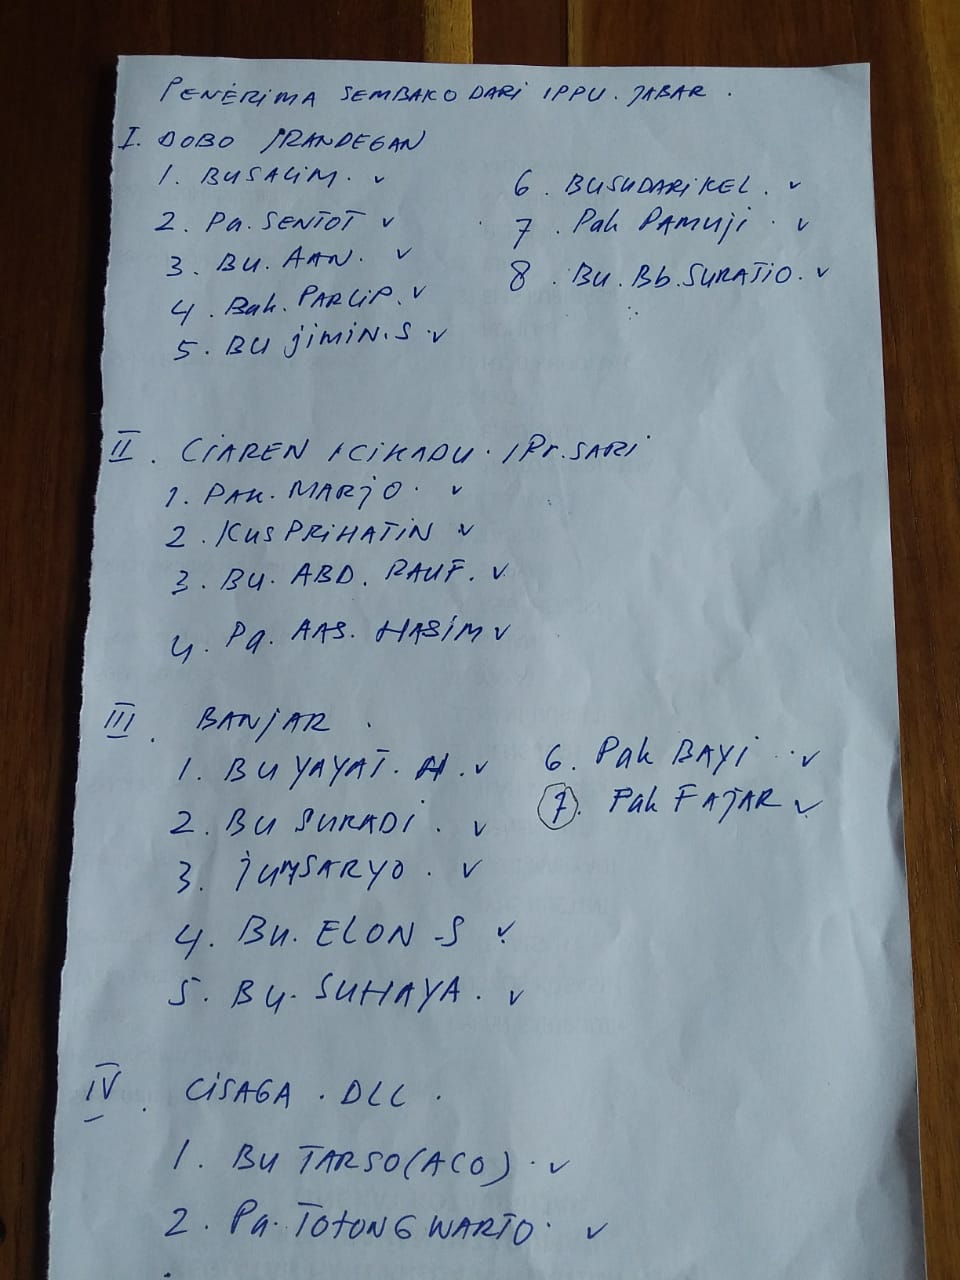 PENERIMA SEMBAKO DARI IPPU. JABAR.
I. DOBO /RANDEGAN
1. BUSALIM. ✓
2. Pa. SENTOT ✓
3. BU. AAN. ✓
4. Bah. PARLIP. ✓
5. BU JIMIN.S ✓
6. BUSUDARIKEL. ✓
7. Pak PAMUJI ✓
8. BU. Bb. SURATIO. ✓
II. CIAREN /CIKADU. /Pr. SARI
1. PAK. MARJO. ✓
2. KUS PRIHATIN ✓
3. BU. ABD. RAUF. ✓
4. Pa. AAS. HASIM ✓
III. BANJAR.
1. BU YAYAT. H. ✓
2. BU SURADI. ✓
3. JUMSARYO. ✓
4. BU. ELON -S ✓
5. BU. SUHAYA. ✓
6. Pak BAYI ✓
7. Pak FAJAR ✓
IV. CISAGA. DLL.
1. BU TARSO (ACO). ✓
2. Pa. TOTONG WARTO. ✓